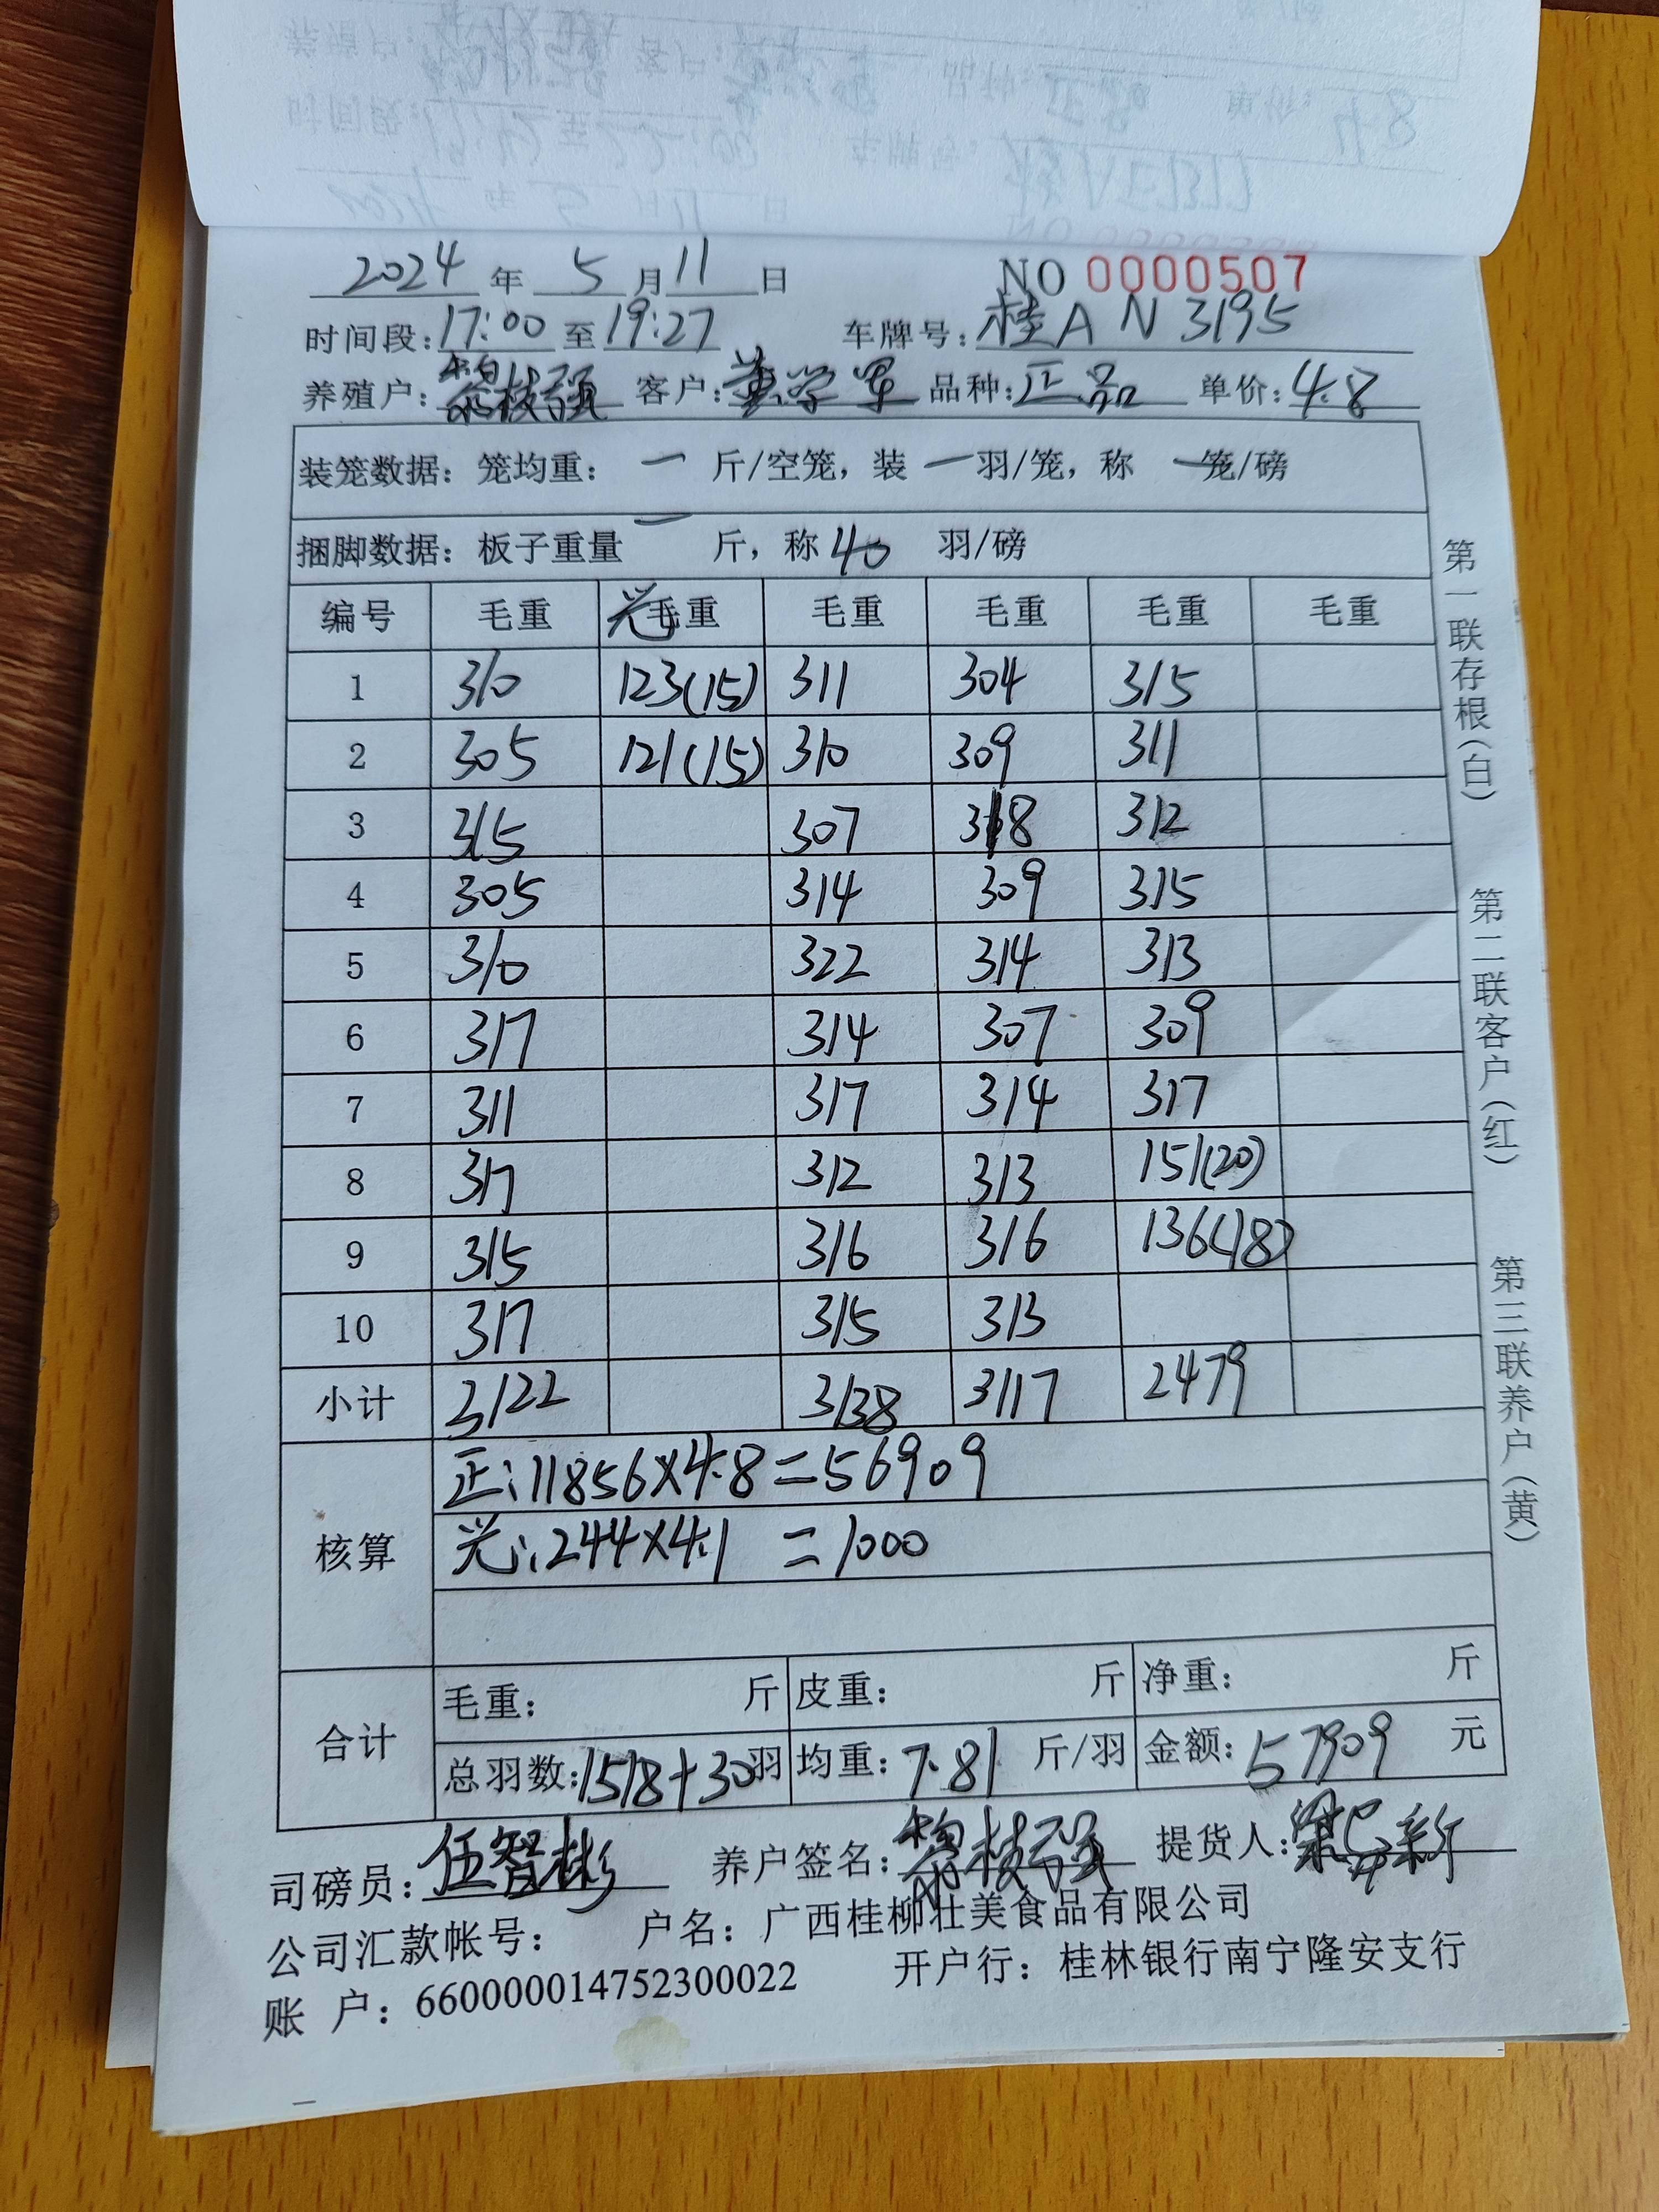 2024 年 5 月 11 日 NO 0000507
时间段:17:00 至 19:27 车牌号:桂A N3195
养殖户: 客户:黄学军 品种:正品 单价:4.8
装笼数据:笼均重: 一 斤/空笼,装 一 羽/笼,称 一 笼/磅
捆脚数据:板子重量 一 斤,称 40 羽/磅
编号 毛重 光毛重 毛重 毛重 毛重 毛重
1 310 123(15) 311 304 315
2 305 121(15) 310 309 311
3 315 307 318 312
4 305 314 309 315
5 310 322 314 313
6 317 314 307 309
7 311 317 314 317
8 317 312 313 151(20)
9 315 316 316 136(18)
10 317 315 313
小计 3122 3138 3117 2479
核算
正:11856×4.8=56909
光:244×4.1=1000
合计
毛重: 斤 皮重: 斤 净重: 斤
总羽数:1518+30羽 均重:7.81 斤/羽 金额:57909 元
司磅员:伍智彬 养户签名: 提货人:
公司汇款帐号: 户名:广西桂柳壮美食品有限公司
账 户:660000014752300022 开户行:桂林银行南宁隆安支行
第一联存根(白) 第二联客户(红) 第三联养户(黄)